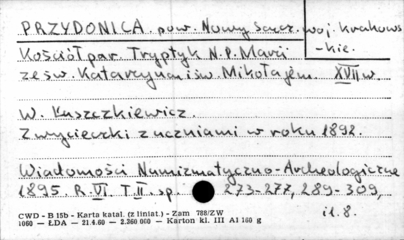 PRZYDONICA. pow. Nowy Sącz. woj. Krakows
-kie.
Kościół par. Tryptyk N.P. Marii
ze św. Katarzyną i św. Mikołajem. XVII w.
W. Łuszczkiewicz.
Z wycieczki z uczniami w roku 1892.
Wiadomości Numizmatyczno-Archeologiczne
1895. R. VI. T. II. sp. 273-277, 289-309,
il. 8.
CWD - B 15b - Karta katal. (z liniat.) - Zam 788/ZW
1060 - ŁDA - 21.4.60 - 2.360.000 - Karton kl. III A1 160 g